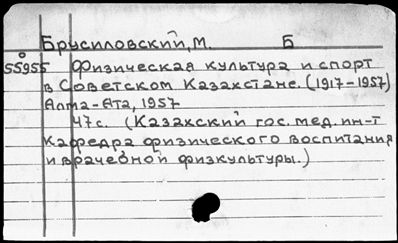 Брусиловский, М. Б
55955 Физическая культура и спорт
в Советском Казахстане. (1917-1957)
Алма-Ата, 1957
47с. (Казахский гос. мед. ин-т
Кафедра физического воспитания
и врачебной физкультуры.)